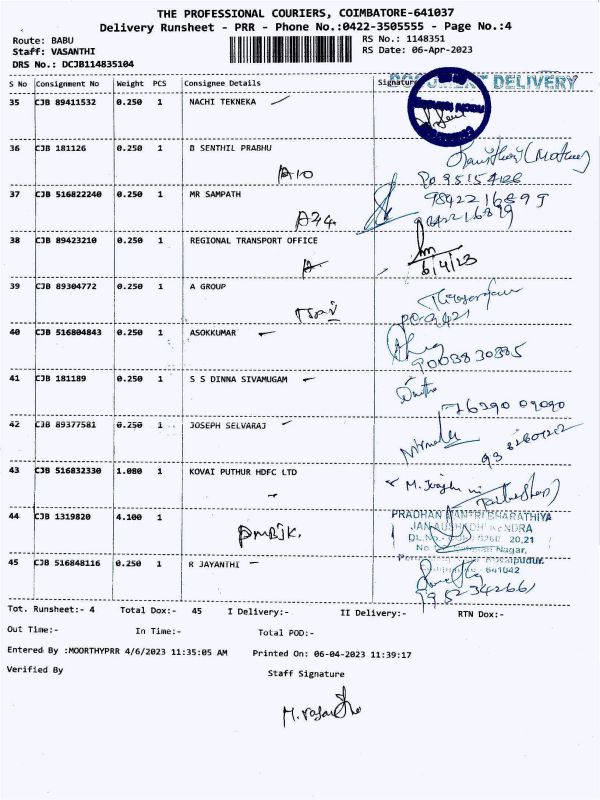 THE PROFESSIONAL COURIERS, COIMBATORE-641037
Delivery Runsheet - PRR - Phone No.:0422-3505555 - Page No.:4
Route: BABU
Staff: VASANTHI
DRS No.: DCJB114835104
RS No.: 1148351
RS Date: 06-Apr-2023
S No Consignment No Weight PCS Consignee Details Signature
DOCUMENT DELIVERY
35 CJB 89411532 0.250 1 NACHI TEKNEKA
36 CJB 181126 0.250 1 B SENTHIL PRABHU
A10
37 CJB 516822240 0.250 1 MR SAMPATH
9842216899
A34.
38 CJB 89423210 0.250 1 REGIONAL TRANSPORT OFFICE
A
6/4/23
39 CJB 89304772 0.250 1 A GROUP
40 CJB 516804843 0.250 1 ASOKKUMAR
9003830885
41 CJB 181189 0.250 1 S S DINNA SIVAMUGAM
76390 09090
42 CJB 89377581 0.250 1 JOSEPH SELVARAJ
Nirmala
43 CJB 516832330 1.080 1 KOVAI PUTHUR HDFC LTD
44 CJB 1319820 4.100 1
PMBJK.
PRADHAN MANTRI BHARATHIYA
JAN AUSHADHI KENDRA
20,21
Nagar,
641042
45 CJB 516848116 0.250 1 R JAYANTHI
Tot. Runsheet:- 4 Total Dox:- 45 I Delivery:- II Delivery:- RTN Dox:-
Out Time:- In Time:- Total POD:-
Entered By :MOORTHYPRR 4/6/2023 11:35:05 AM Printed On: 06-04-2023 11:39:17
Verified By Staff Signature